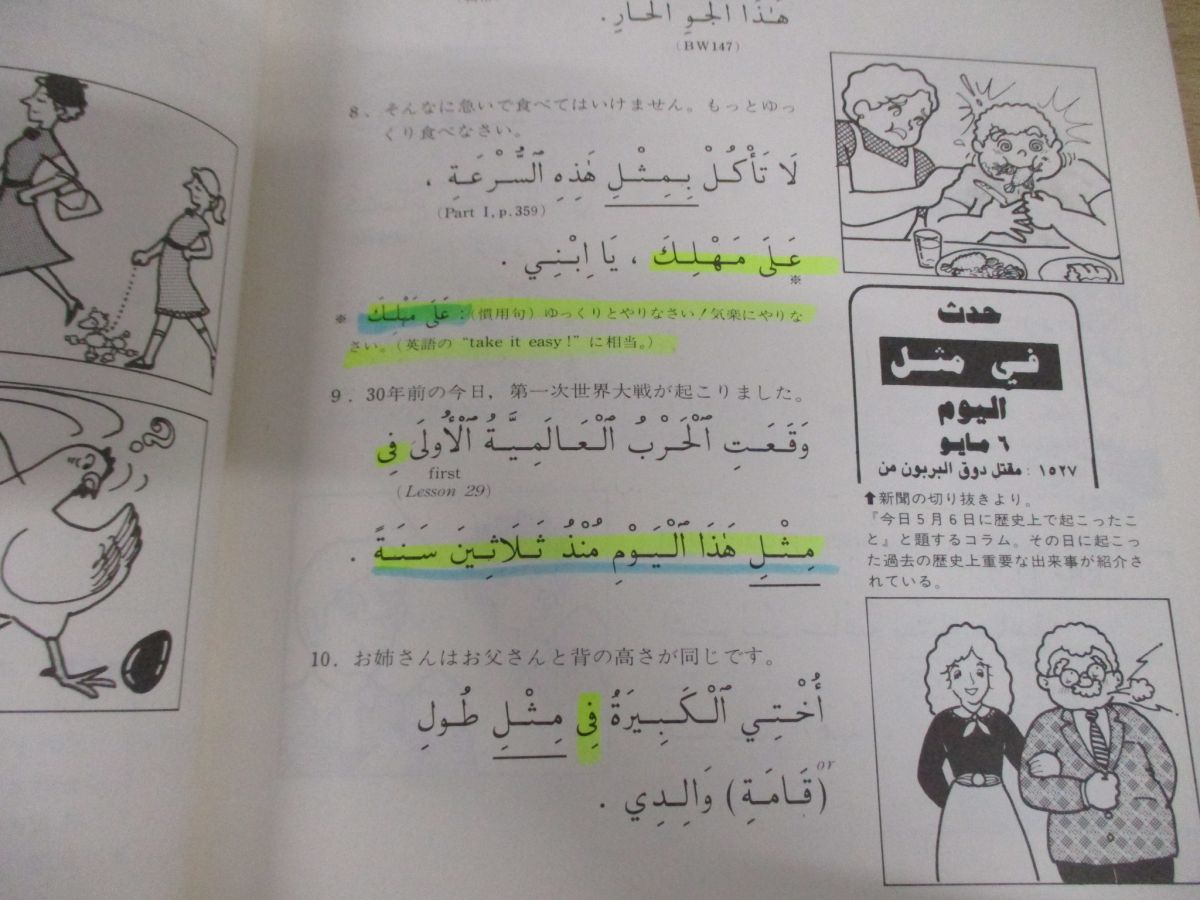 هٰذَا الْجَوِّ الْحَارِّ .
(BW147)
8. そんなに急いで食べてはいけません。もっとゆっ
くり食べなさい。
لَا تَأْكُلْ بِمِثْلِ هٰذِهِ ٱلسُّرْعَةِ ،
(Part I, p.359)
عَلَى مَهْلِكَ ، يَا ٱبْنِي .
※
※ عَلَى مَهْلِكَ :（慣用句）ゆっくりとやりなさい！気楽にやりな
さい。（英語の“take it easy!”に相当。）
9. 30年前の今日，第一次世界大戦が起こりました。
وَقَعَتِ ٱلْحَرْبُ ٱلْعَالَمِيَّةُ ٱلْأُولَى فِي
first
(Lesson 29)
مِثْلِ هٰذَا ٱلْيَوْمِ مُنْذُ ثَلَاثِينَ سَنَةً .
10. お姉さんはお父さんと背の高さが同じです。
أُخْتِي ٱلْكَبِيرَةُ فِي مِثْلِ طُولِ
or
(قَامَةِ) وَالِدِي .
حدث
في مثل
اليوم
٦ مايو
١٥٢٧ : مقتل دوق البربون من
⬆新聞の切り抜きより。
『今日5月6日に歴史上で起こったこ
と』と題するコラム。その日に起こっ
た過去の歴史上重要な出来事が紹介さ
れている。